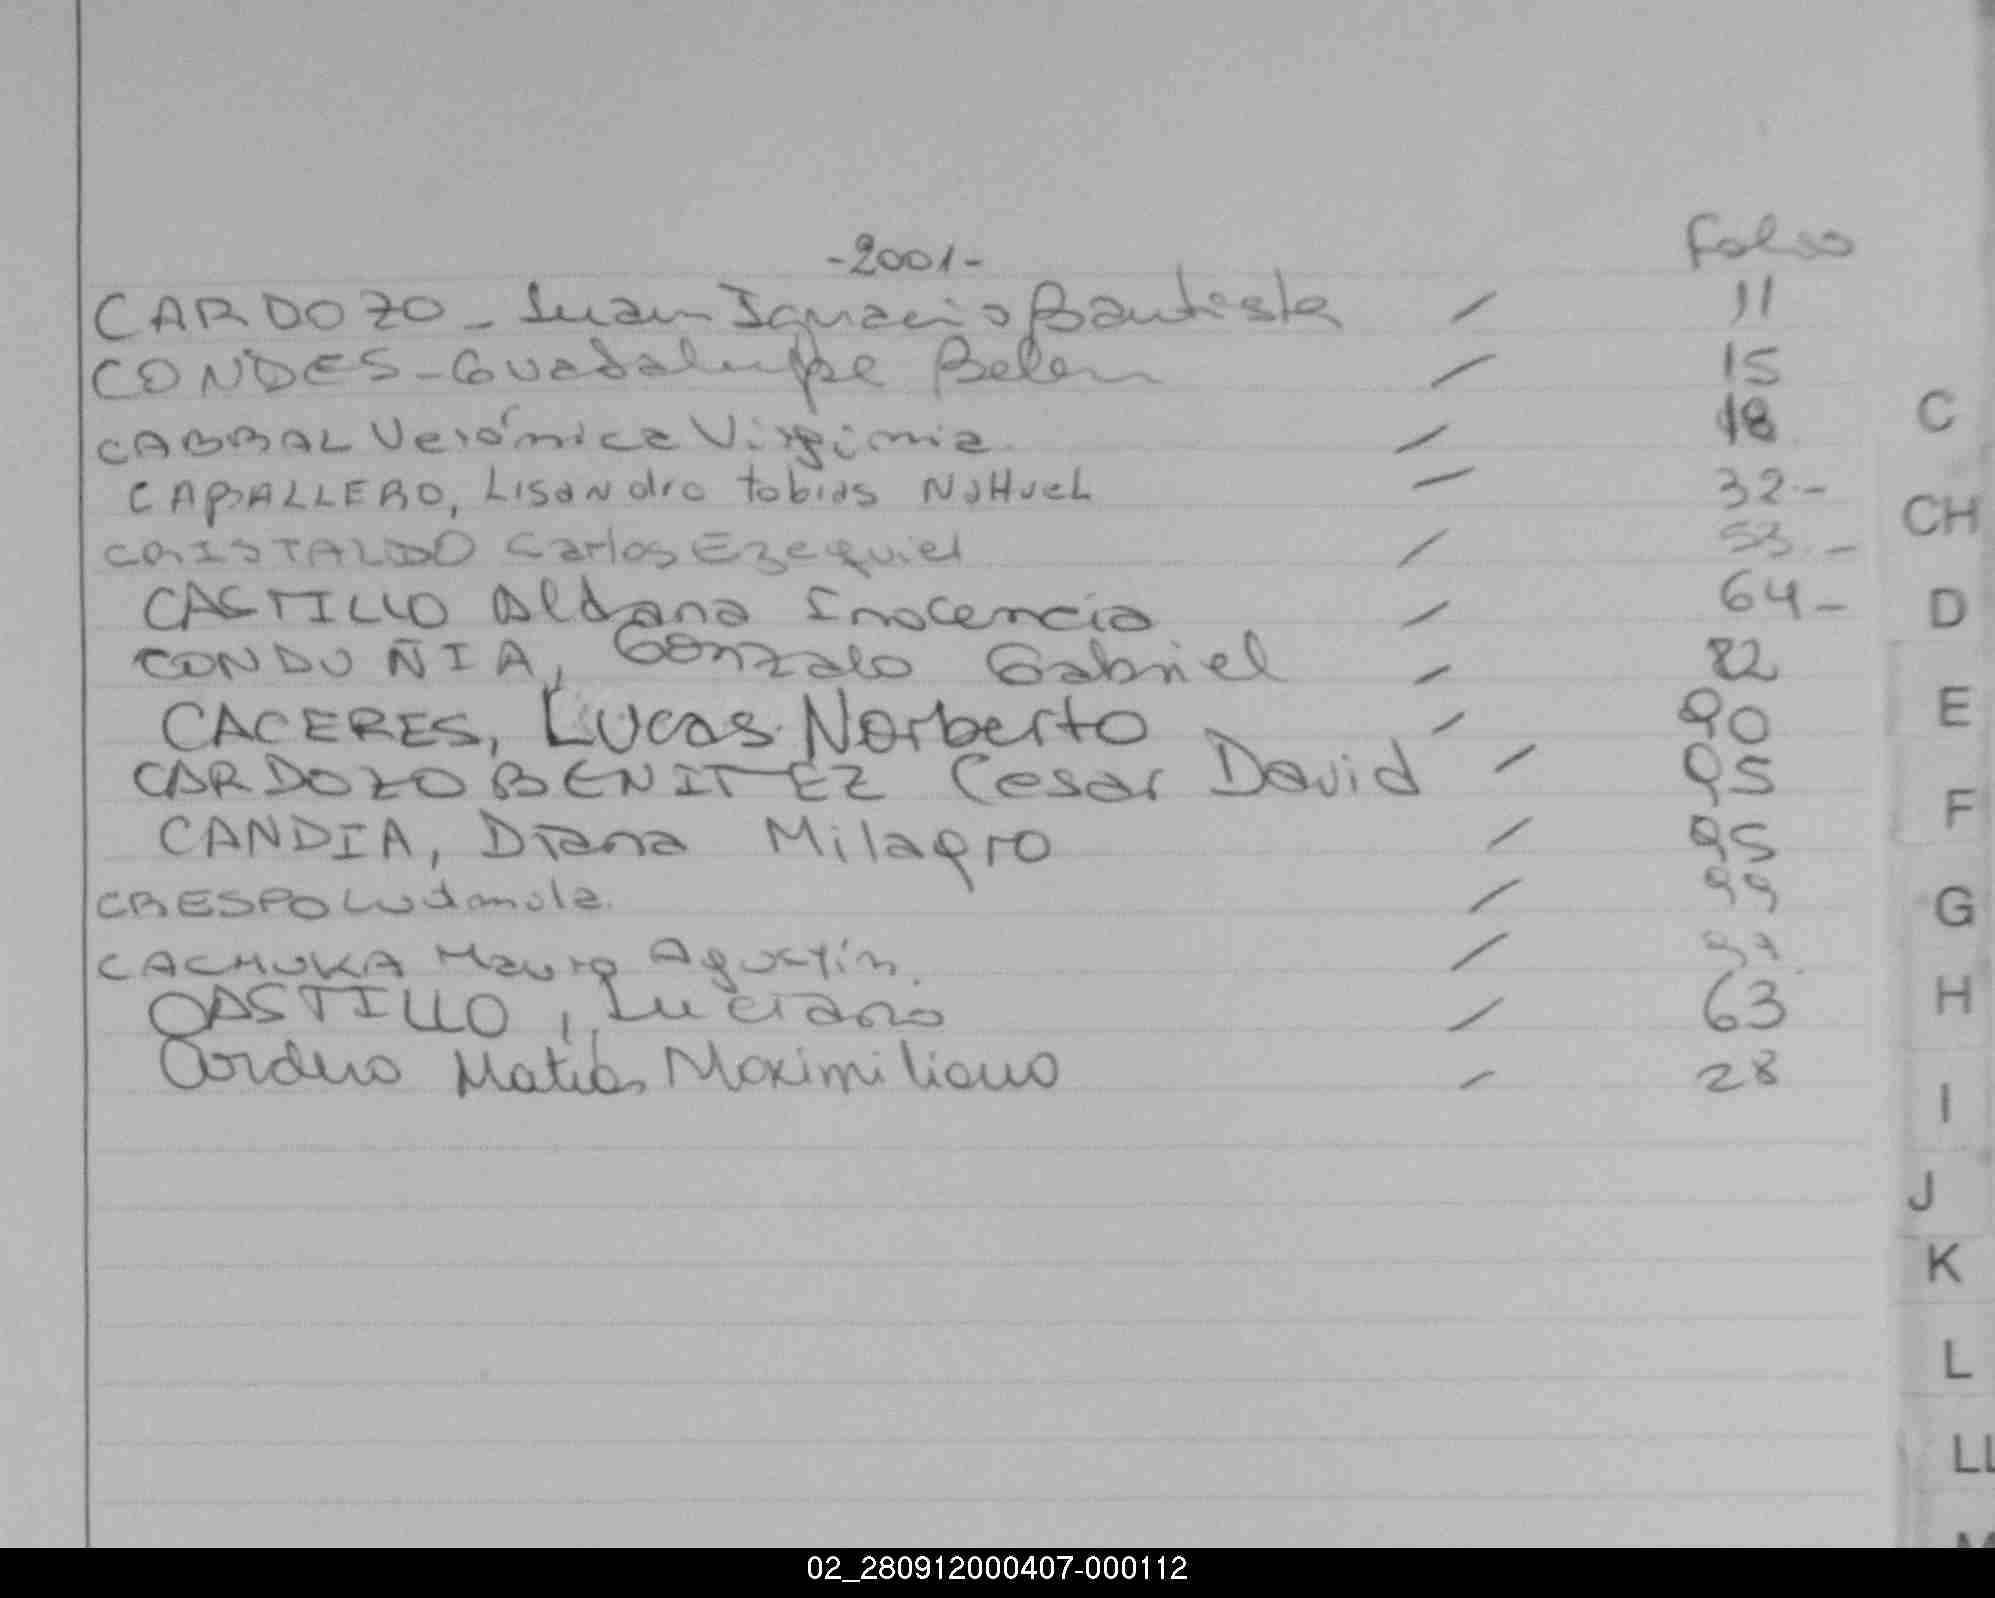 -2001-
Folio
CARDOZO - Juan Ignacio Bautista / 11
CONDES - Guadalupe Belen / 15
CABRAL Verónica Virginia / 18
CABALLERO, Lisandro tobias NaHueL / 32.-
CRISTALDO Carlos Ezequiel / 53.-
CASTILLO Aldana Inocencia / 64-
CONDUÑIA, Gonzalo Gabriel / 82
CACERES, Lucas Norberto / 90
CARDOZO BENITEZ Cesar David / 95
CANDIA, Diana Milagro / 95
CRESPO / 99
CACHUKA Mauro Agustín. /
CASTILLO, Luciano / 63
Matias Maximiliano / 28
C
CH
D
E
F
G
H
I
J
K
L
LL
M
02_280912000407-000112